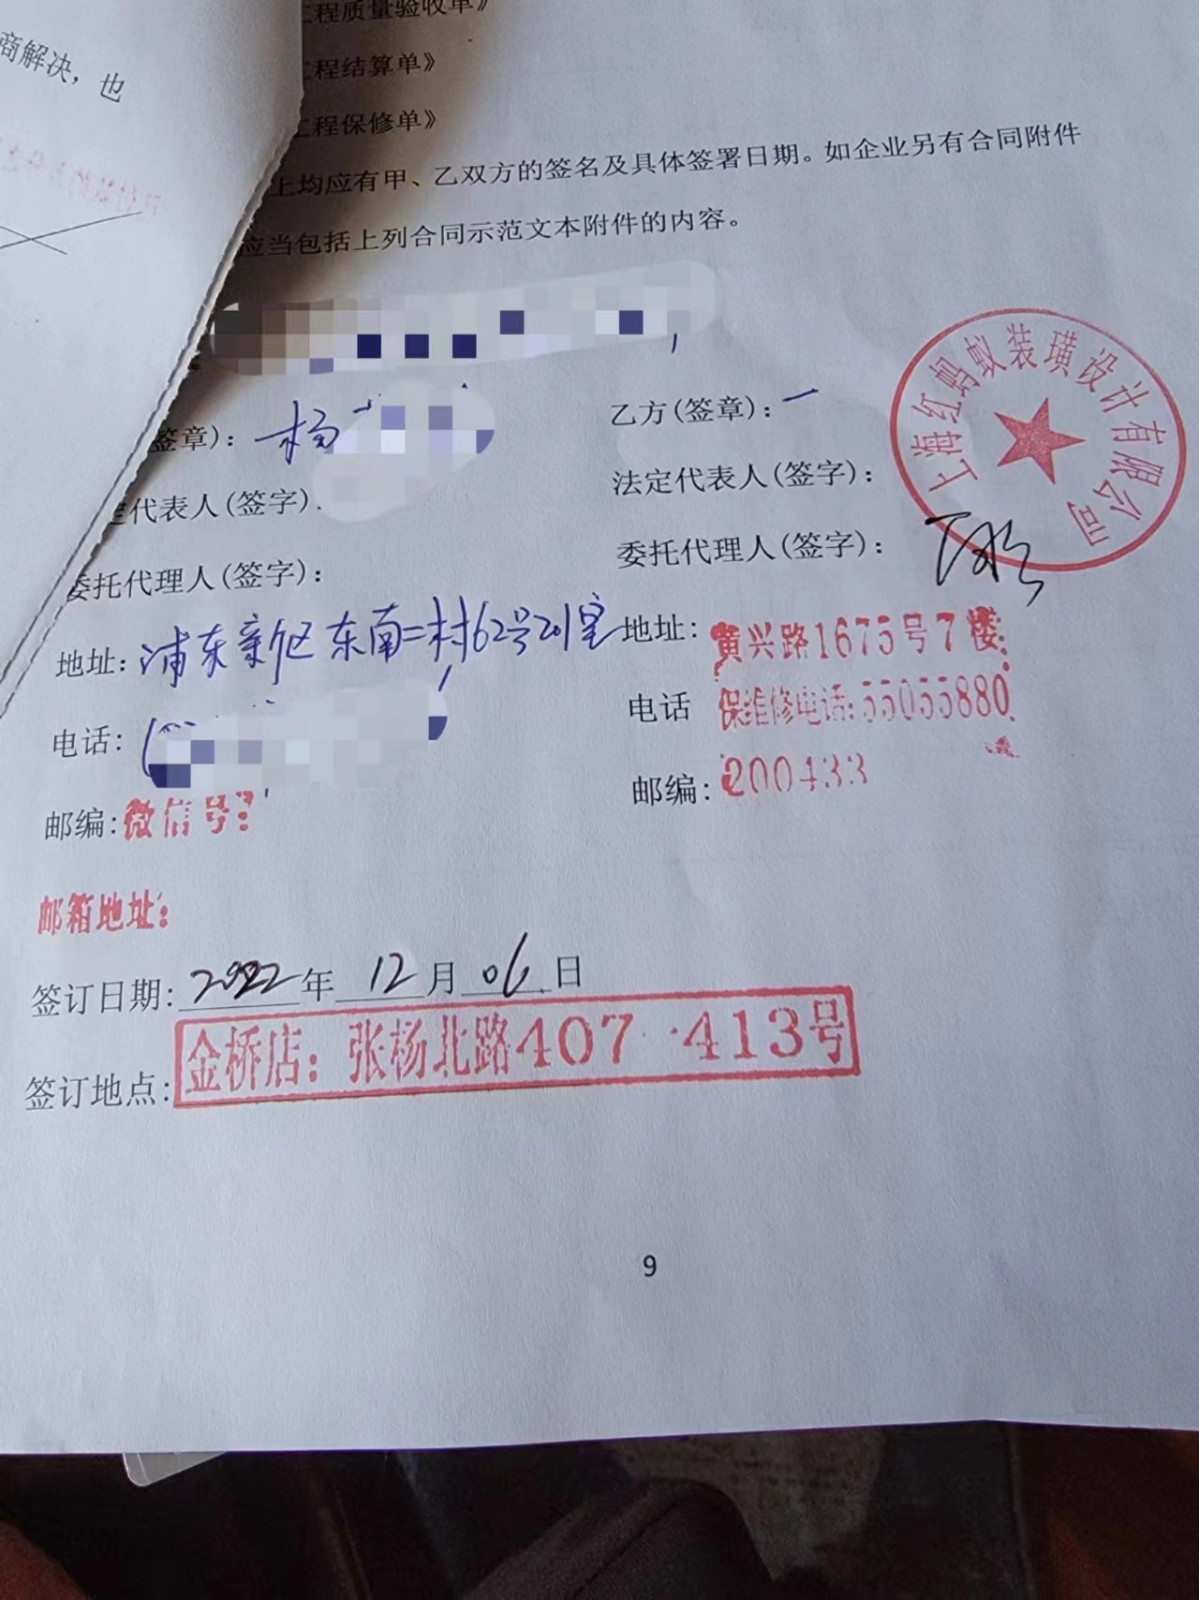 商解决，也
工程质量验收单》
工程结算单》
工程保修单》
上均应有甲、乙双方的签名及具体签署日期。如企业另有合同附件
应当包括上列合同示范文本附件的内容。
签章)：杨
乙方(签章)：
上海红蚂蚁装璜设计有限公司
定代表人(签字)
法定代表人(签字)：
委托代理人(签字)：
委托代理人(签字)：
地址：浦东新区东南二村62号201室
地址：黄兴路1675号7楼
电话：
电话 保维修电话:55055880
邮编:微信号:
邮编:200433
邮箱地址:
签订日期: 2022年 12月 06日
签订地点: 金桥店：张杨北路407 413号
9